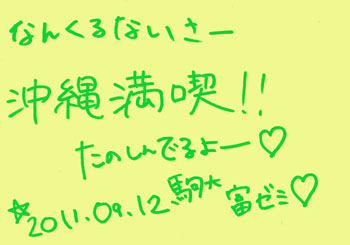 なんくるないさー
沖縄満喫!!
たのしんでるよー♡
☆2011.09.12 駒大 富ゼミ♡